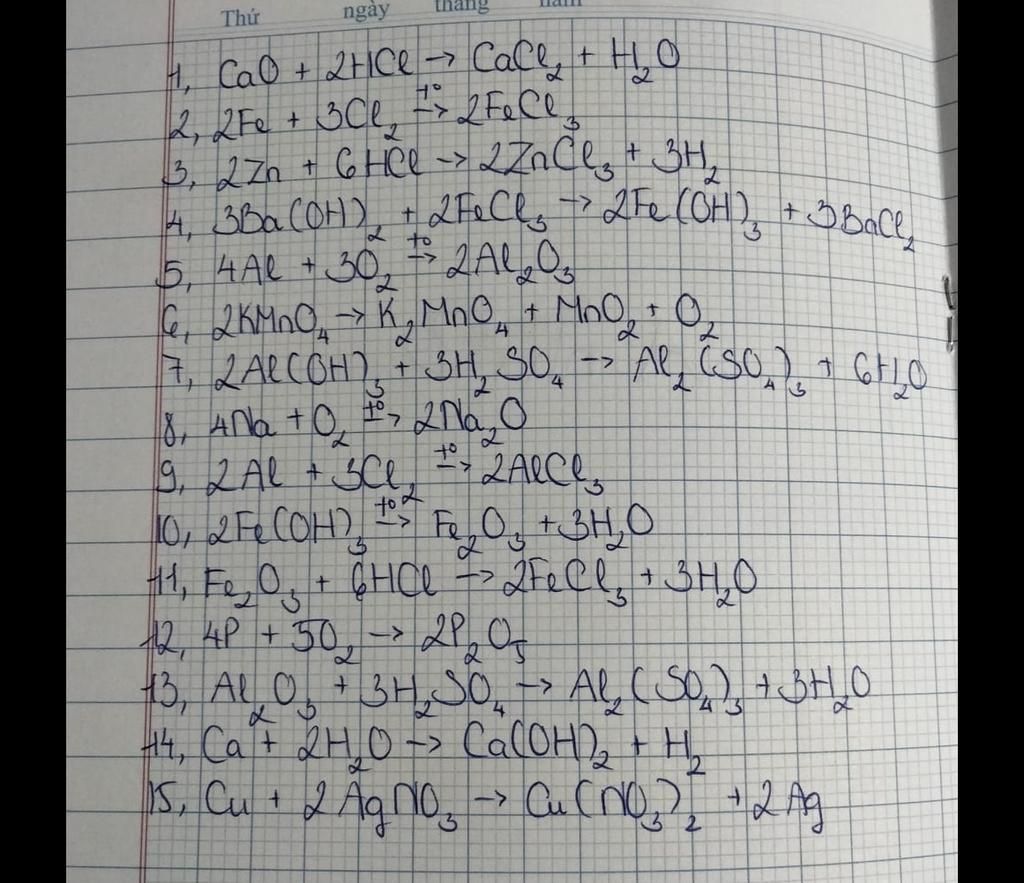 Thứ ngày tháng năm
1, CaO + 2HCl → CaCl₂ + H₂O
2, 2Fe + 3Cl₂ →(t⁰) 2FeCl₃
3, 2Zn + 6HCl → 2ZnCl₃ + 3H₂
4, 3Ba(OH)₂ + 2FeCl₃ → 2Fe(OH)₃ + 3BaCl₂
5, 4Al + 3O₂ →(t⁰) 2Al₂O₃
6, 2KMnO₄ → K₂MnO₄ + MnO₂ + O₂
7, 2Al(OH)₃ + 3H₂SO₄ → Al₂(SO₄)₃ + 6H₂O
8, 4Na + O₂ →(t⁰) 2Na₂O
9, 2Al + 3Cl₂ →(t⁰) 2AlCl₃
10, 2Fe(OH)₃ →(t⁰) Fe₂O₃ + 3H₂O
11, Fe₂O₃ + 6HCl → 2FeCl₃ + 3H₂O
12, 4P + 5O₂ → 2P₂O₅
13, Al₂O₃ + 3H₂SO₄ → Al₂(SO₄)₃ + 3H₂O
14, Ca + 2H₂O → Ca(OH)₂ + H₂
15, Cu + 2AgNO₃ → Cu(NO₃)₂ + 2Ag